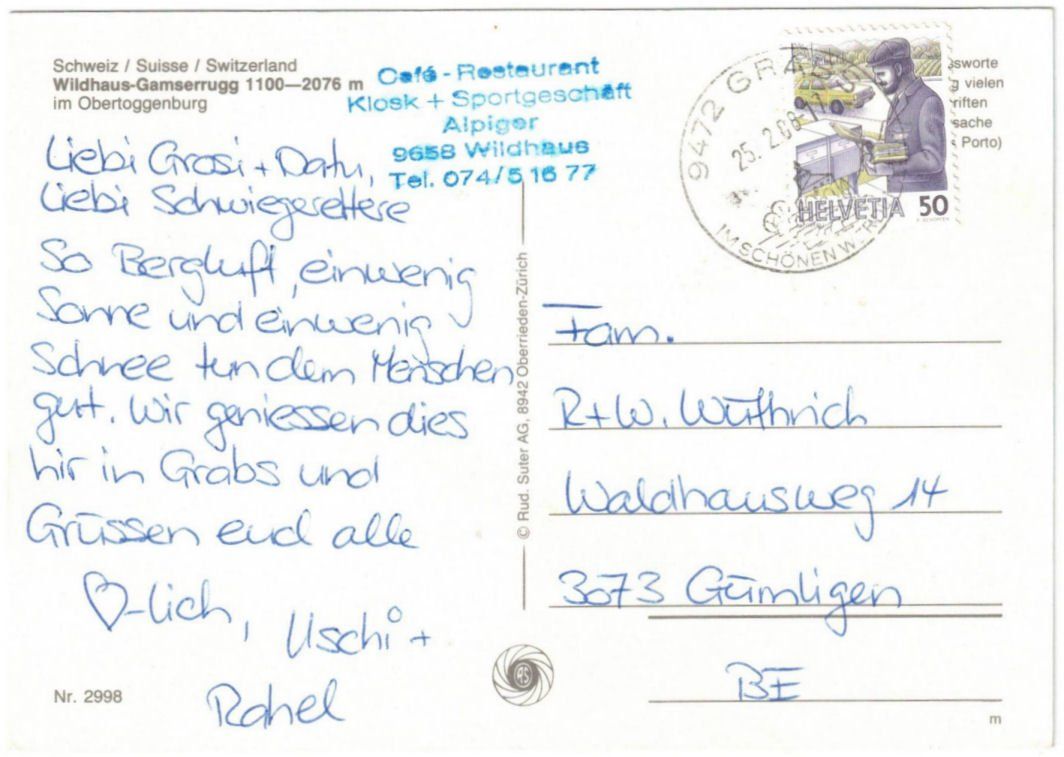 Schweiz / Suisse / Switzerland
Wildhaus-Gamserrugg 1100—2076 m
im Obertoggenburg
Café - Restaurant
Kiosk + Sportgeschäft
Alpiger
9658 Wildhaus
Tel. 074/5 16 77
Liebi Grosi + Datu,
Liebi Schwiegereltere
So Bergluft, einwenig
Sonne und einwenig
Schnee tun dem Menschen
gut. Wir geniessen dies
hir in Grabs und
Grüssen eud alle
♡-lich, Uschi +
Rahel
Nr. 2998
© Rud. Suter AG, 8942 Oberrieden-Zürich
RS
9472 GRABS
25. 2. 88-17
IM SCHÖNEN
HELVETIA 50
vielen
Porto)
Fam.
R+W. Wüthrich
Waldhausweg 14
3073 Gümligen
BE
m